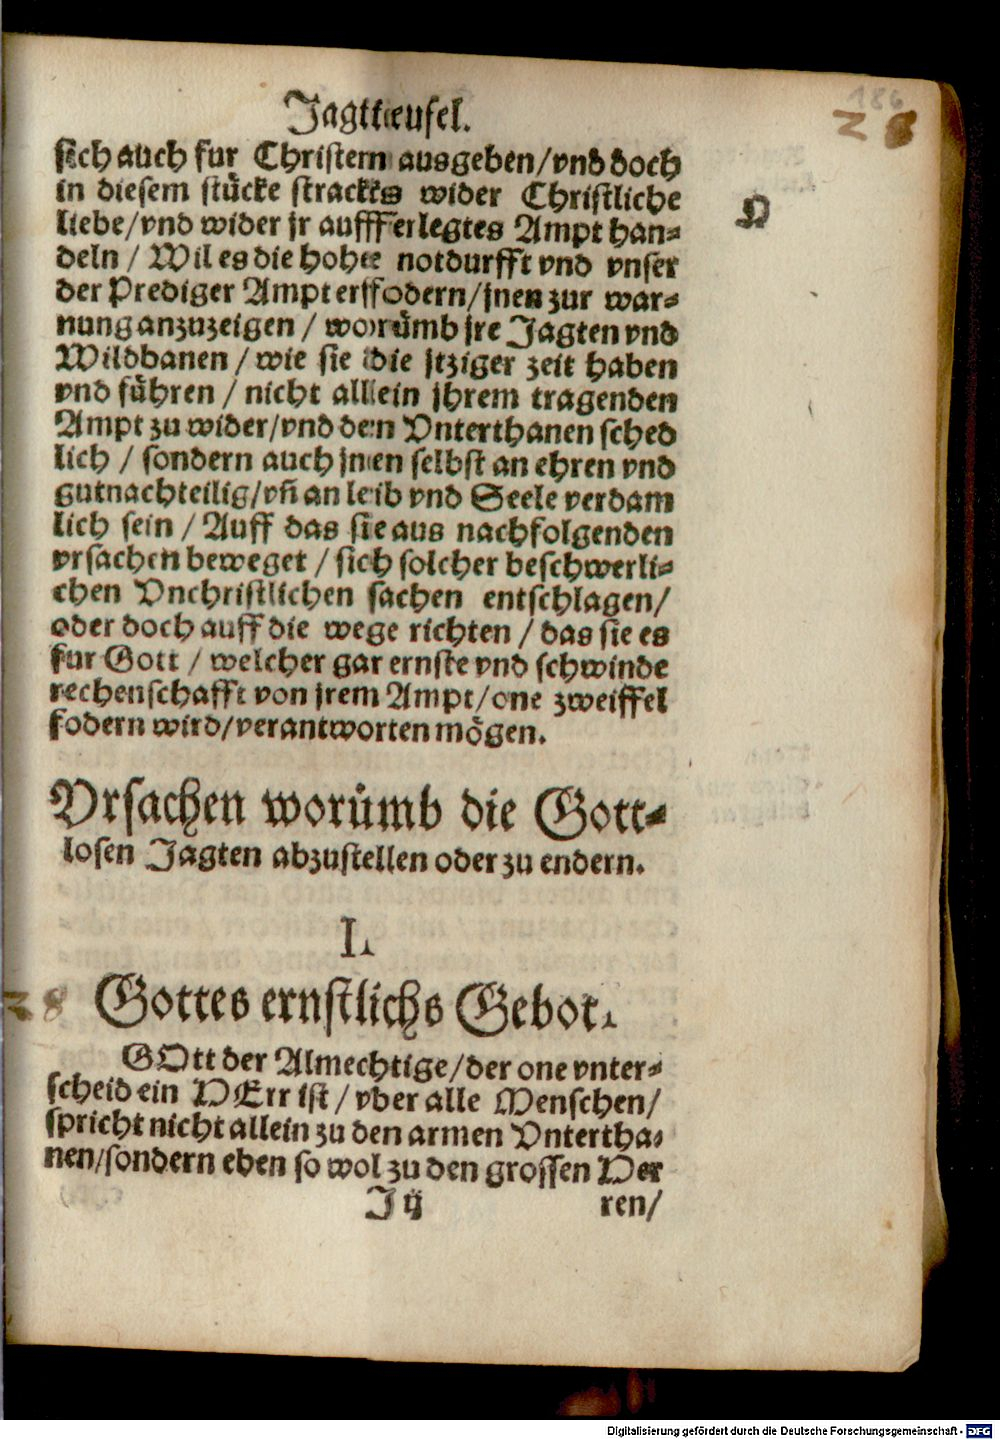 Jagtteufel.
186
28
sich auch fur Christen ausgeben/vnd doch
in diesem stücke stracks wider Christliche
liebe/vnd wider jr aufferlegtes Ampt han⸗
deln / Wil es die hohe notdurfft vnd vnser
der Prediger Ampt erffodern/jnen zur war⸗
nung anzuzeigen / worümb jre Jagten vnd
Wildbanen / wie sie die jtziger zeit haben
vnd führen / nicht allein jhrem tragenden
Ampt zu wider/vnd den Vnterthanen sched
lich / sondern auch jnen selbst an ehren vnd
gut nachteilig/vñ an leib vnd Seele verdam
lich sein / Auff das sie aus nachfolgenden
vrsachen beweget / sich solcher beschwerli⸗
chen Vnchristlichen sachen entschlagen/
oder doch auff die wege richten / das sie es
fur Gott / welcher gar ernste vnd schwinde
rechenschafft von jrem Ampt/one zweiffel
fodern wird/verantworten mögen.
Vrsachen worümb die Gott⸗
losen Jagten abzustellen oder zu endern.
I.
28 Gottes ernstlichs Gebot.
GOtt der Almechtige/der one vnter⸗
scheid ein HErr ist / vber alle Menschen/
spricht nicht allein zu den armen Vntertha⸗
nen/sondern eben so wol zu den grossen Her
J ij ren/
Digitalisierung gefördert durch die Deutsche Forschungsgemeinschaft - DFG